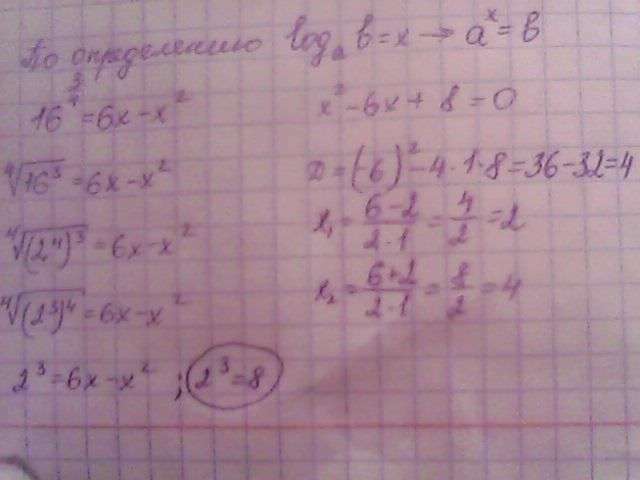 По определению log_a b = x → a^x = b
16^(3/4) = 6x - x^2
⁴√(16^3) = 6x - x^2
⁴√((2^4)^3) = 6x - x^2
⁴√((2^3)^4) = 6x - x^2
2^3 = 6x - x^2 ; 2^3 = 8
x^2 - 6x + 8 = 0
D = (-6)^2 - 4·1·8 = 36 - 32 = 4
x₁ = (6-2)/(2·1) = 4/2 = 2
x₂ = (6+2)/(2·1) = 8/2 = 4